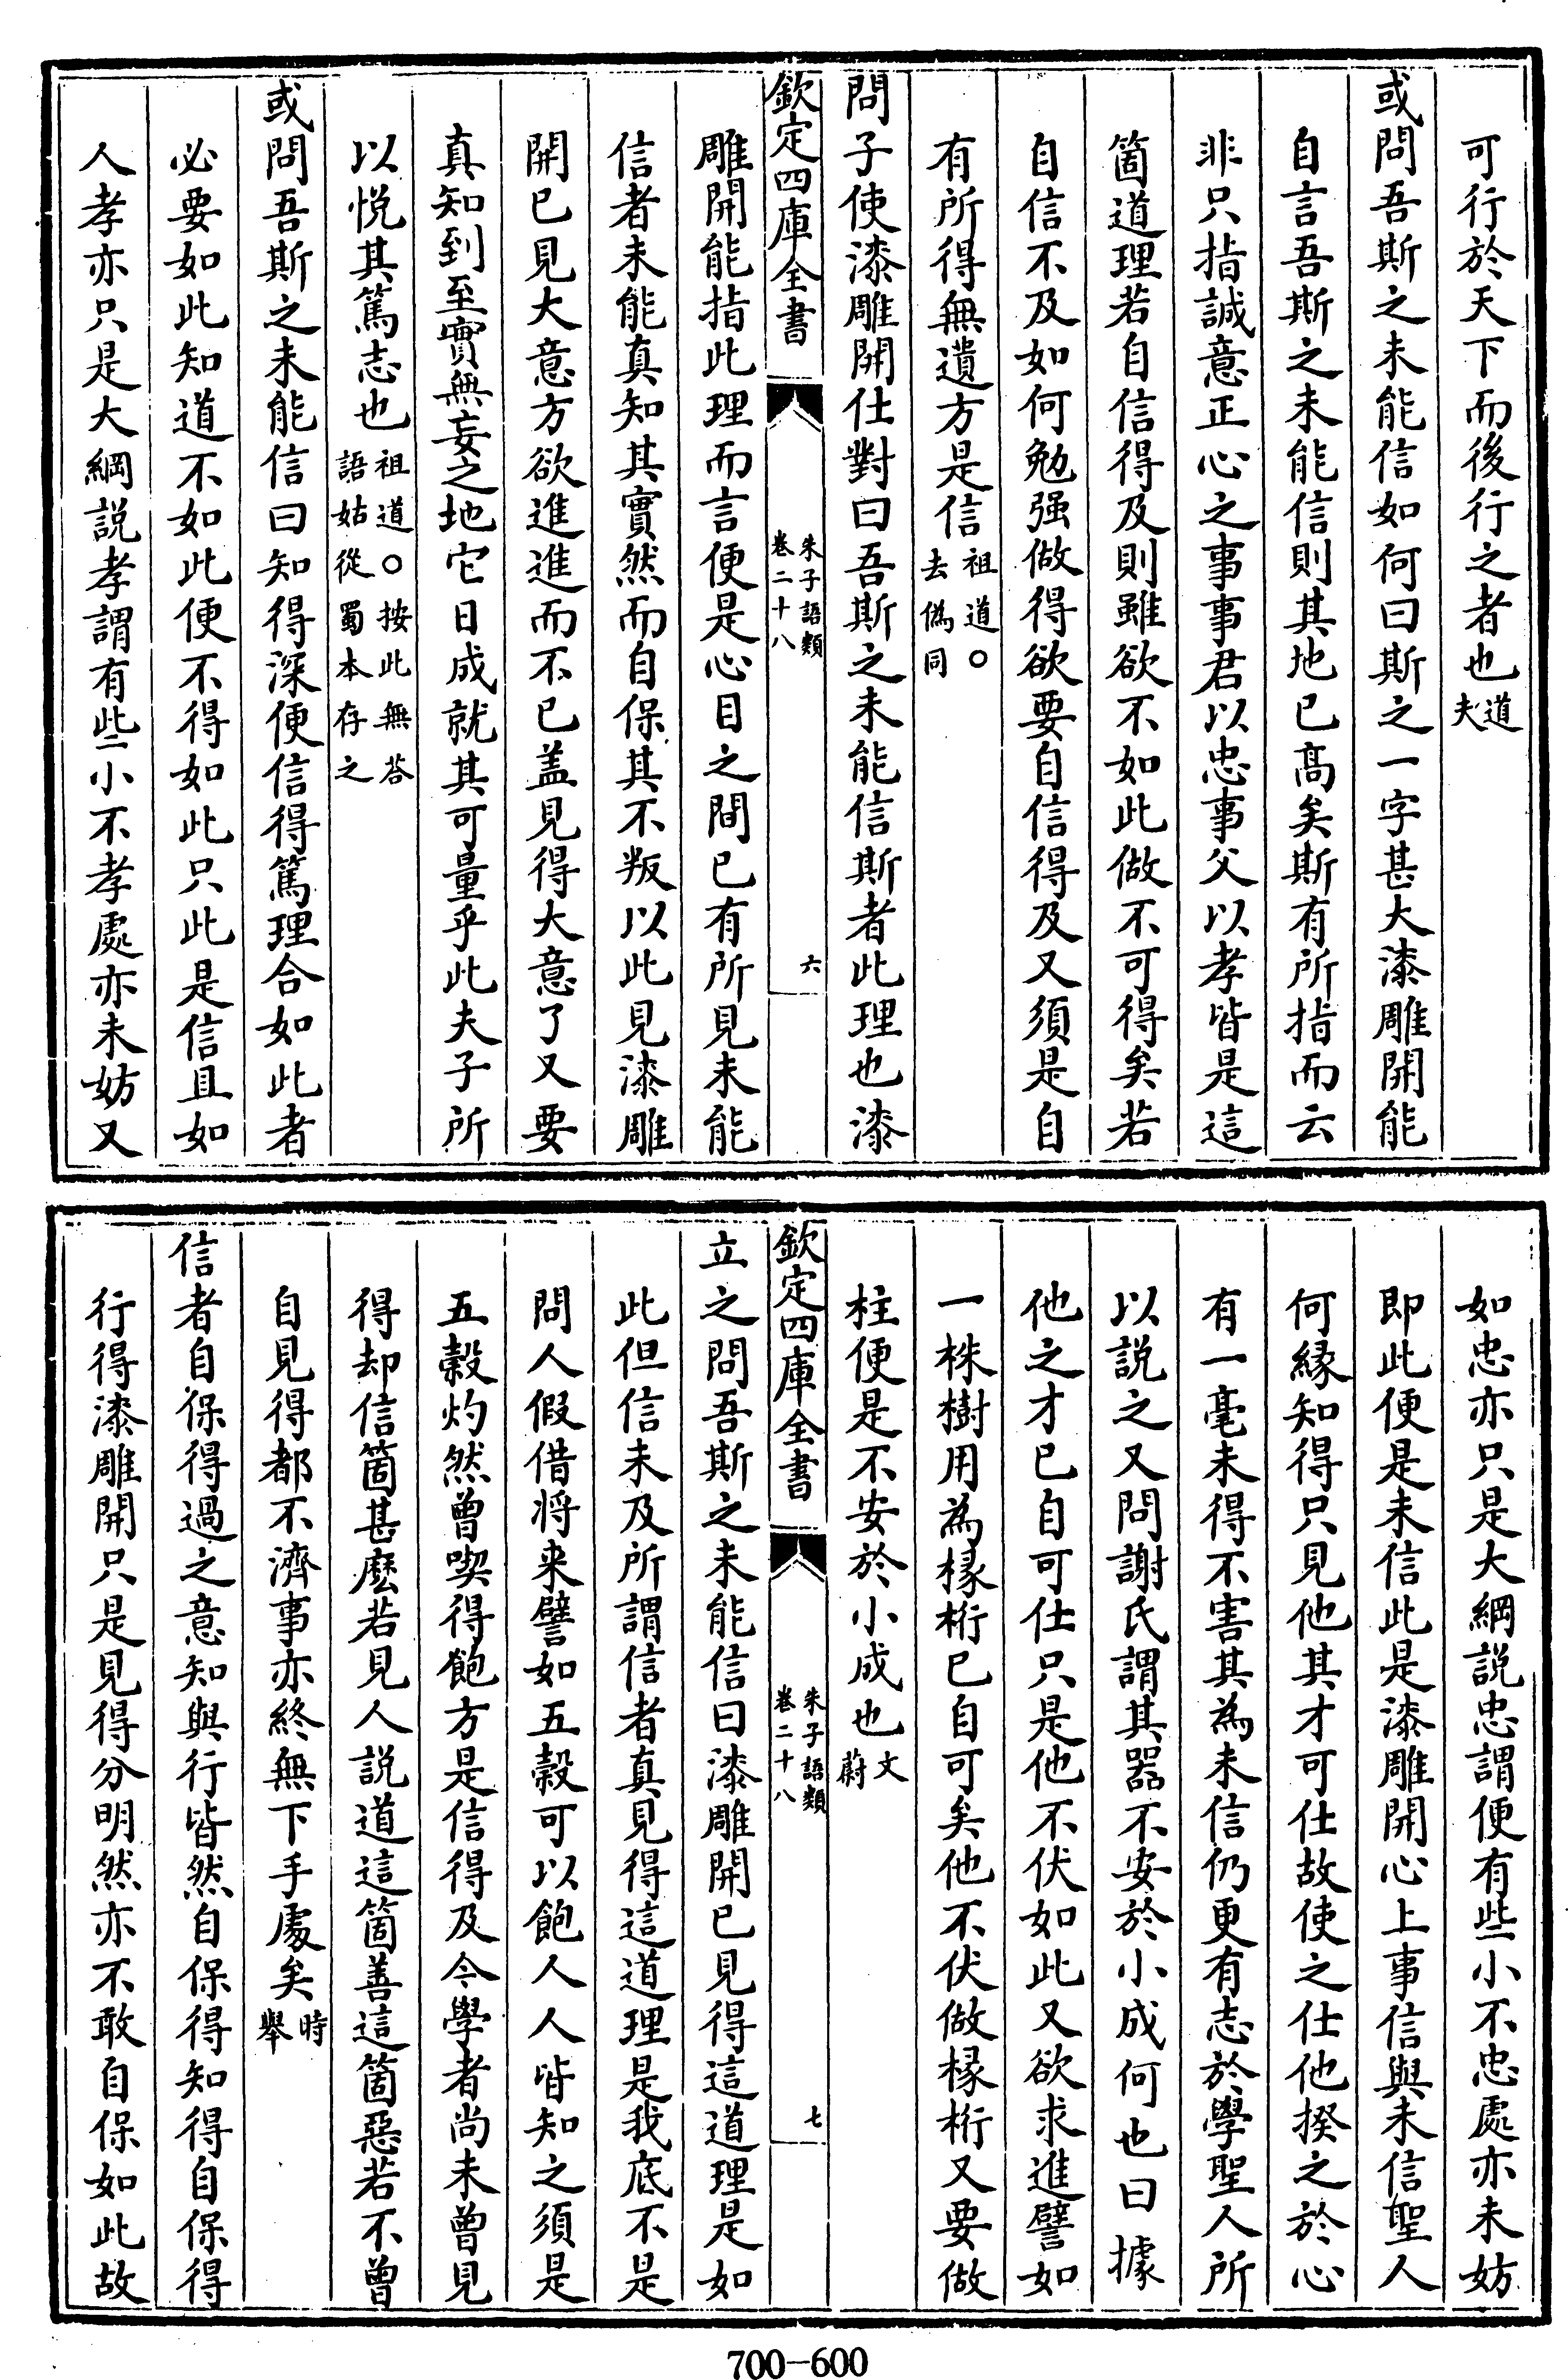 可行於天下而後行之者也道夫
或問吾斯之未能信如何曰斯之一字甚大漆雕開能
自言吾斯之未能信則其地已高矣斯有所指而云
非只指誠意正心之事事君以忠事父以孝皆是這
箇道理若自信得及則雖欲不如此做不可得矣若
自信不及如何勉强做得欲要自信得及又須是自
有所得無遺方是信祖道○去偽同
問子使漆雕開仕對曰吾斯之未能信斯者此理也漆
欽定四庫全書
朱子語類
卷二十八
六
雕開能指此理而言便是心目之間已有所見未能
信者未能真知其實然而自保其不叛以此見漆雕
開已見大意方欲進進而不已盖見得大意了又要
真知到至實無妄之地它日成就其可量乎此夫子所
以悦其篤志也祖道○按此無荅語姑從蜀本存之
或問吾斯之未能信曰知得深便信得篤理合如此者
必要如此知道不如此便不得如此只此是信且如
人孝亦只是大綱説孝謂有些小不孝處亦未妨又
如忠亦只是大綱説忠謂便有些小不忠處亦未妨
即此便是未信此是漆雕開心上事信與未信聖人
何縁知得只見他其才可仕故使之仕他揆之於心
有一毫未得不害其為未信仍更有志於學聖人所
以説之又問謝氏謂其器不安於小成何也曰據
他之才已自可仕只是他不伏如此又欲求進譬如
一株樹用為椽桁已自可矣他不伏做椽桁又要做
柱便是不安於小成也文蔚
欽定四庫全書
朱子語類
卷二十八
七
立之問吾斯之未能信曰漆雕開已見得這道理是如
此但信未及所謂信者真見得這道理是我底不是
問人假借将来譬如五榖可以飽人人皆知之須是
五榖灼然曾喫得飽方是信得及今學者尚未曾見
得却信箇甚麽若見人説道這箇善這箇惡若不曾
自見得都不濟事亦終無下手處矣時舉
信者自保得過之意知與行皆然自保得知得自保得
行得漆雕開只是見得分明然亦不敢自保如此故
700-600